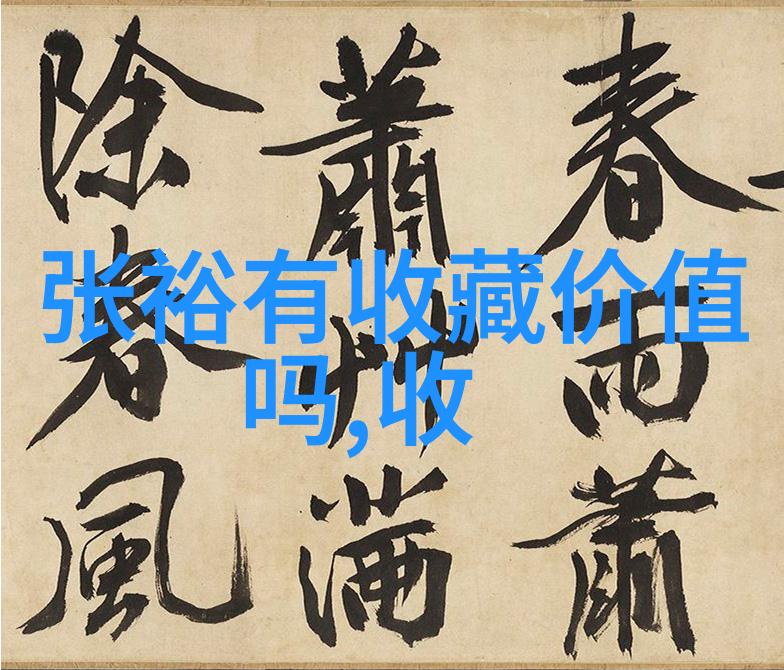 张裕有收藏价值
吗,收
春雨蕭
蕭艸滿
除春風